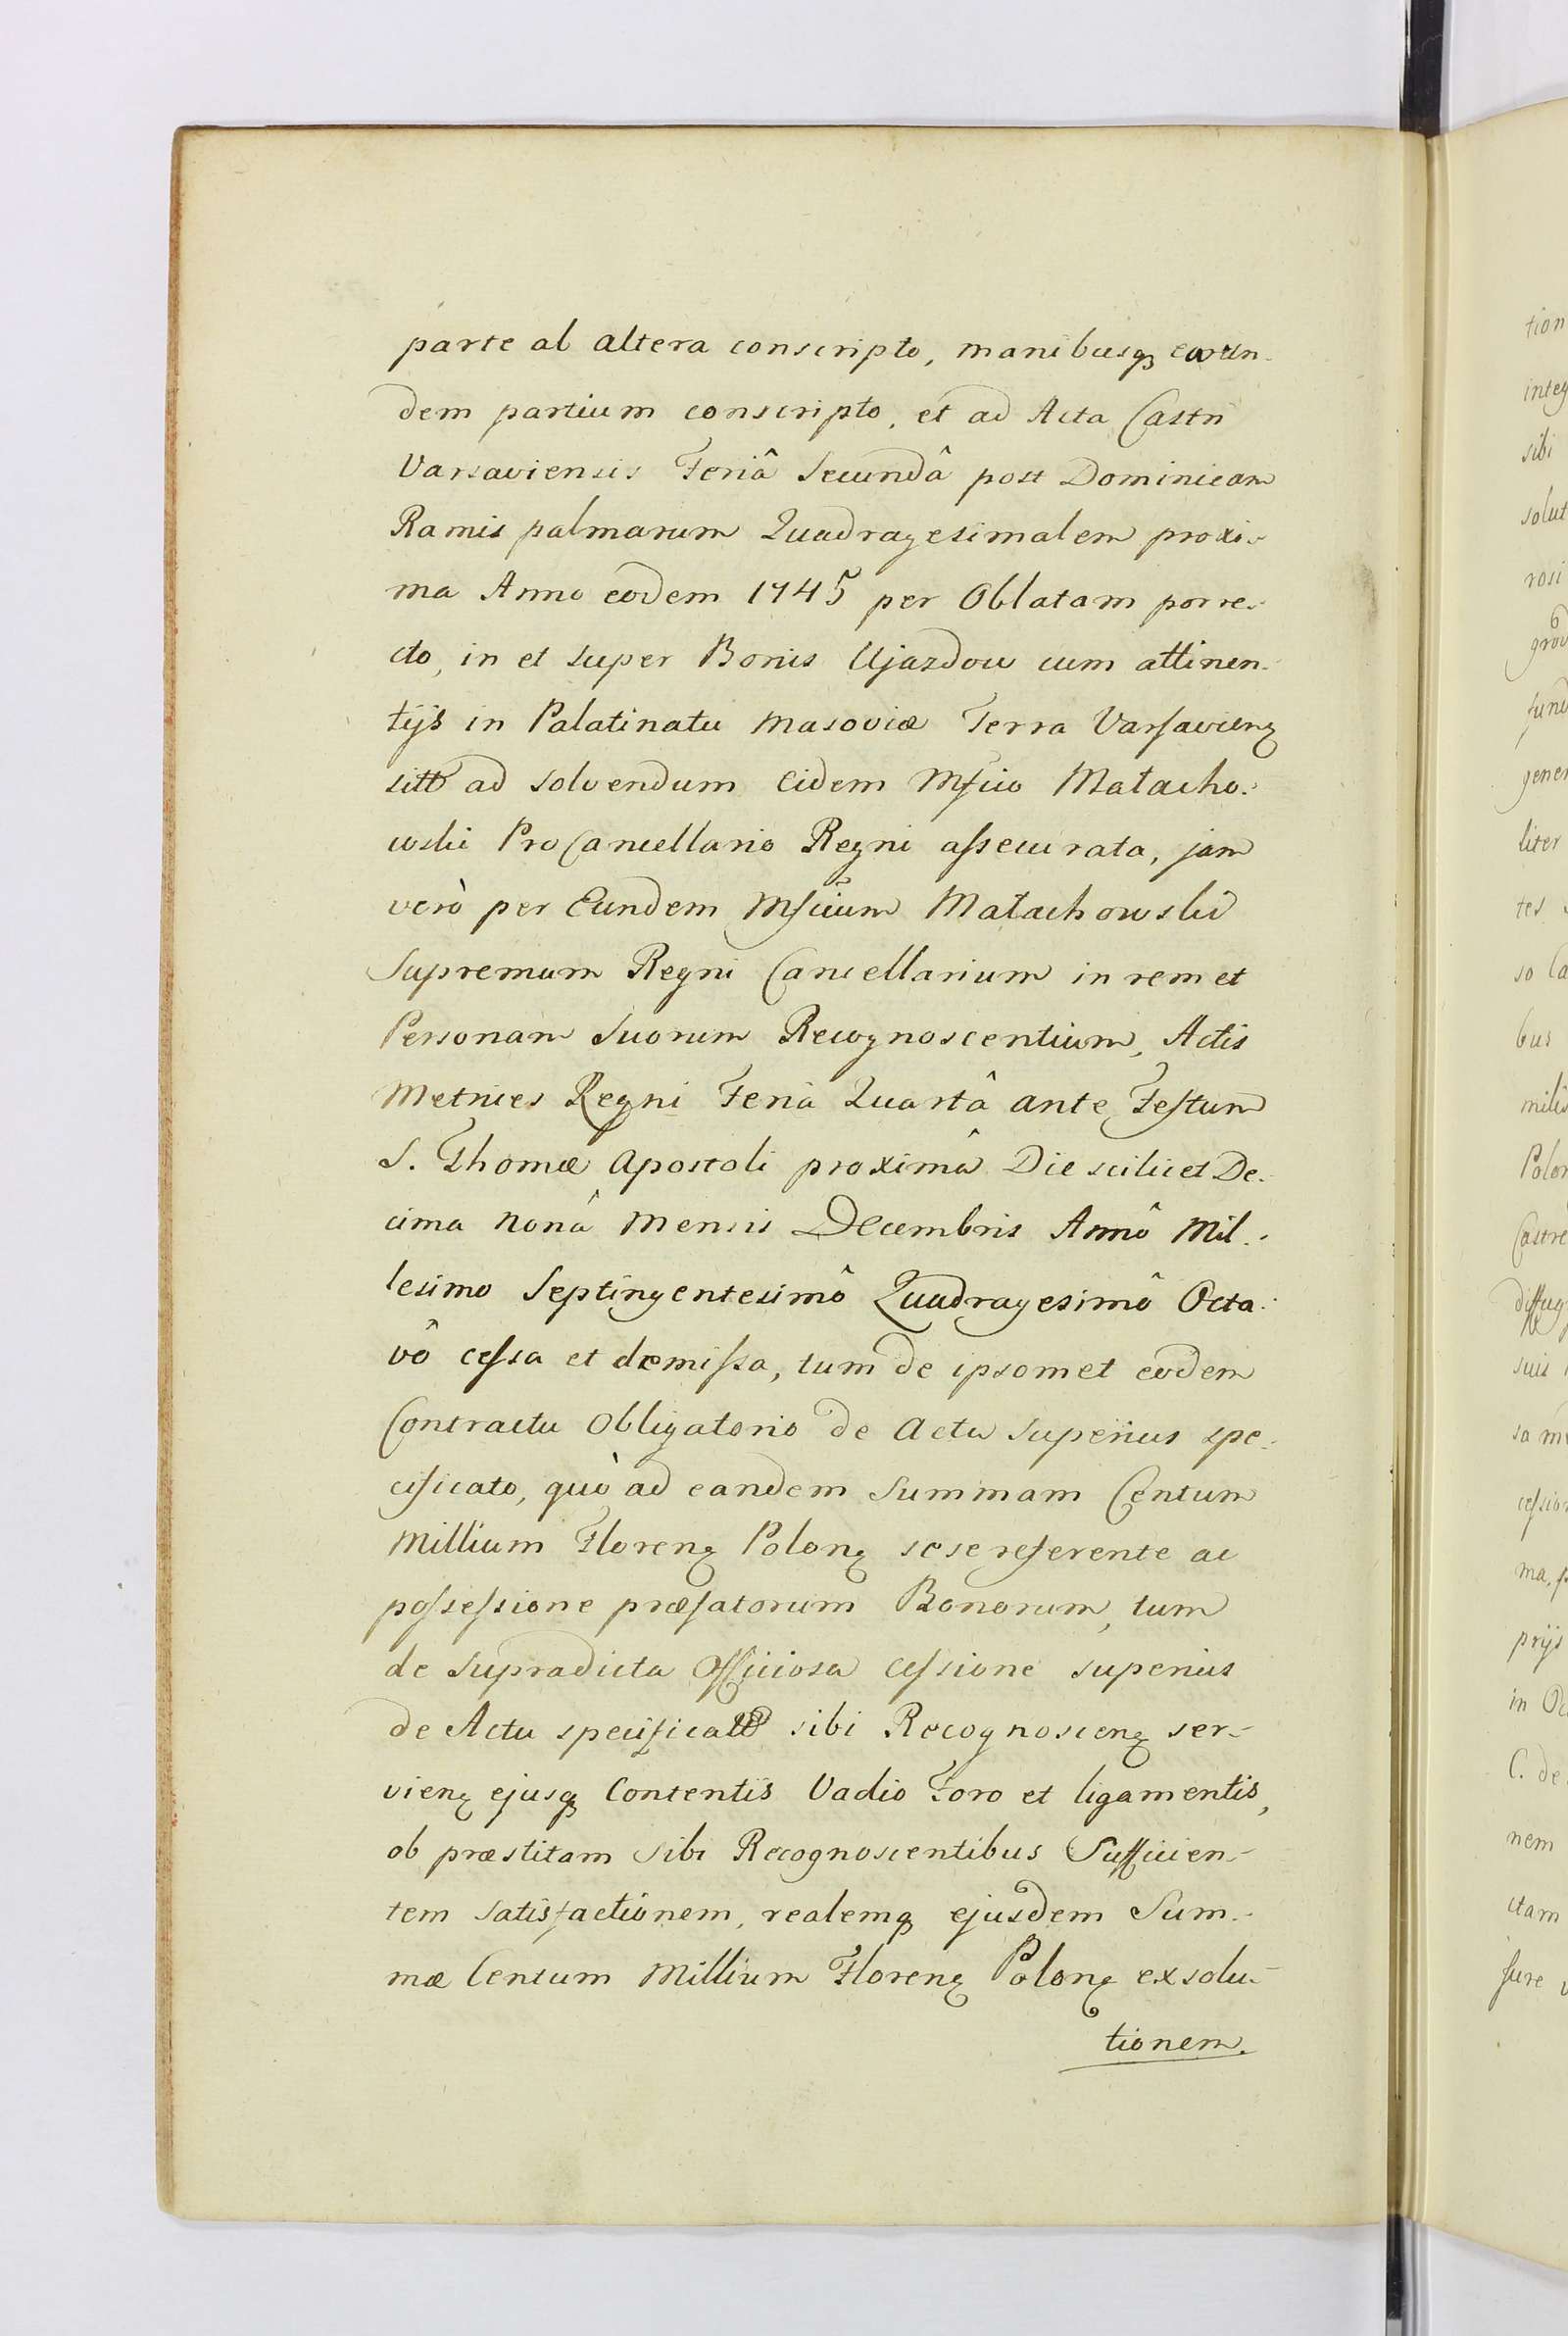 parte al altera conscripto, manibusq eorun-
dem partium conscripto, et ad Acta Castri
Varsaviensis Feriâ Secundâ post Dominicam
Ramis palmarum Quadragesimalem proxi-
ma Anno eodem 1745 per Oblatam porre-
cto, in et super Bonis Ujazdow cum attinen-
tijs in Palatinatu Masoviæ Terra Varsavienȝ
sitt ad solvendum eidem Mfico Małacho-
wski ProCancellario Regni assecurata, jam
verò per Eundem Mficum Małachowski
Supremum Regni Cancellarium in rem et
Personam Suorum Recognoscentium, Actis
Metrices Regni Feriâ Quartâ ante Festum
S. Thomæ Apostoli proximâ Die scilicet De-
cima nonâ Mensis Decembris Annô Mil-
lesimo Septingentesimô Quadragesimô Octa-
vô cessa et demissa, tum de ipsomet eodem
Contractu Obligatorio de Actu superius spe-
cificato, quò ad eandem Summam Centum
Millium Florenȝ Polonȝ sese referente ac
possessione præfatorum Bonorum, tum
de Supradicta Officiosa cessione superius
de Actu specificatt sibi Recognoscenȝ ser-
vienȝ ejusq Contentis Vadio Foro et ligamentis,
ob præstitam sibi Recognoscentibus Sufficien-
tem Satisfactionem, realemq ejusdem Sum-
mæ Centum Millium Florenȝ Polonȝ exsolu-
tionem.
tion
integ
sibi
solut
rosi
fund
gener
liter
tes
so Ca
bus
milis
Polon
Castre
suis
sa m
cession
ma, p
prijs
in Oc
C. de
nem
ctam
Jure v